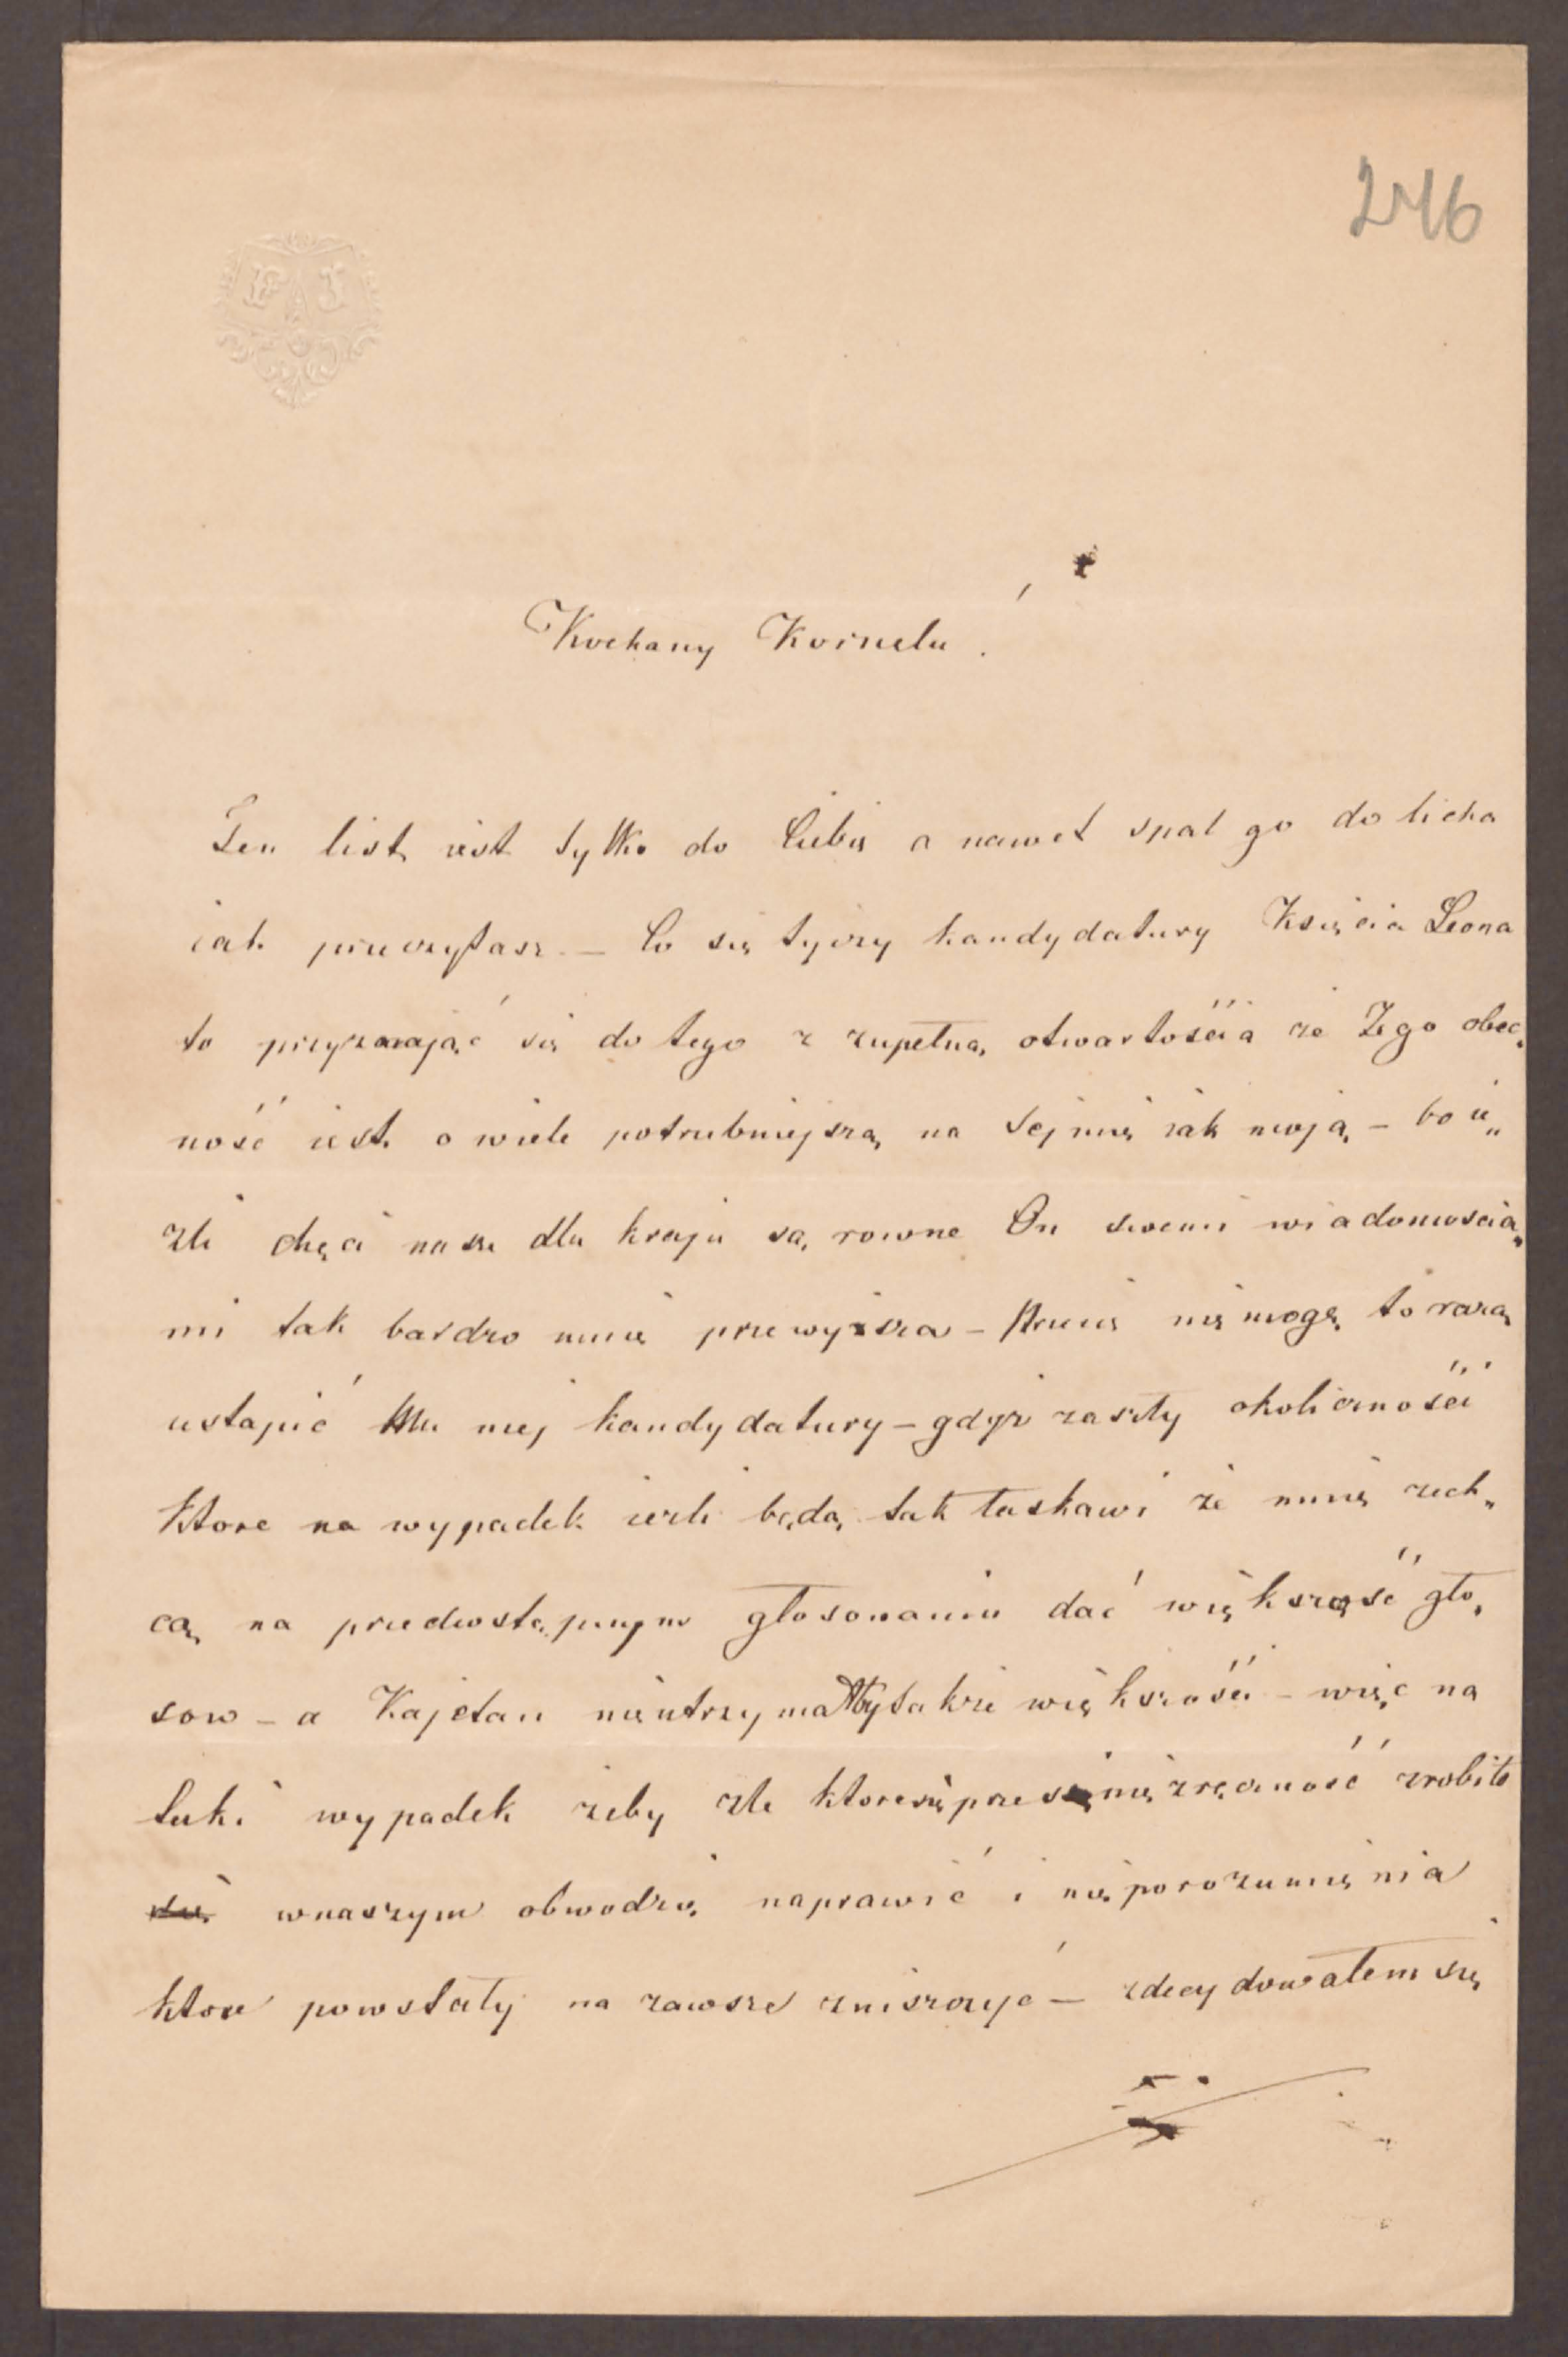 246
P A J
Kochany Kornelu.
Ten list iest tylko do Ciebie a nawet spal go do licha
iak przeczytasz. — Co się tyczy kandydatury Księcia Leona
to przyznając się do tego z zupełną otwartością że Jego obec„
ność iest o wiele potrzebniejszą na Sejmie iak moja, – bo ie„
zli chęci nasze dla kraju są, rowne On swemi wiadomościa„
mi tak bardzo mnie przewyższa – nie mogę to razą
ustąpić Mu mej kandydatury – gdyż zaszły okoliczności
ktore na wypadek iezli będą, tak łaskawi że mnie zech„
cą, na przedwstępnym głosowaniu dać większość gło„
sow – a Kajetan nieutrzymałby takze większości – więc na
taki wypadek żeby złe ktore się przez niezręczność zrobiło
wnaszym obwodzie naprawić i nieporozumienia
ktore powstały na zawsze zniszczyć – zdecydowałem się